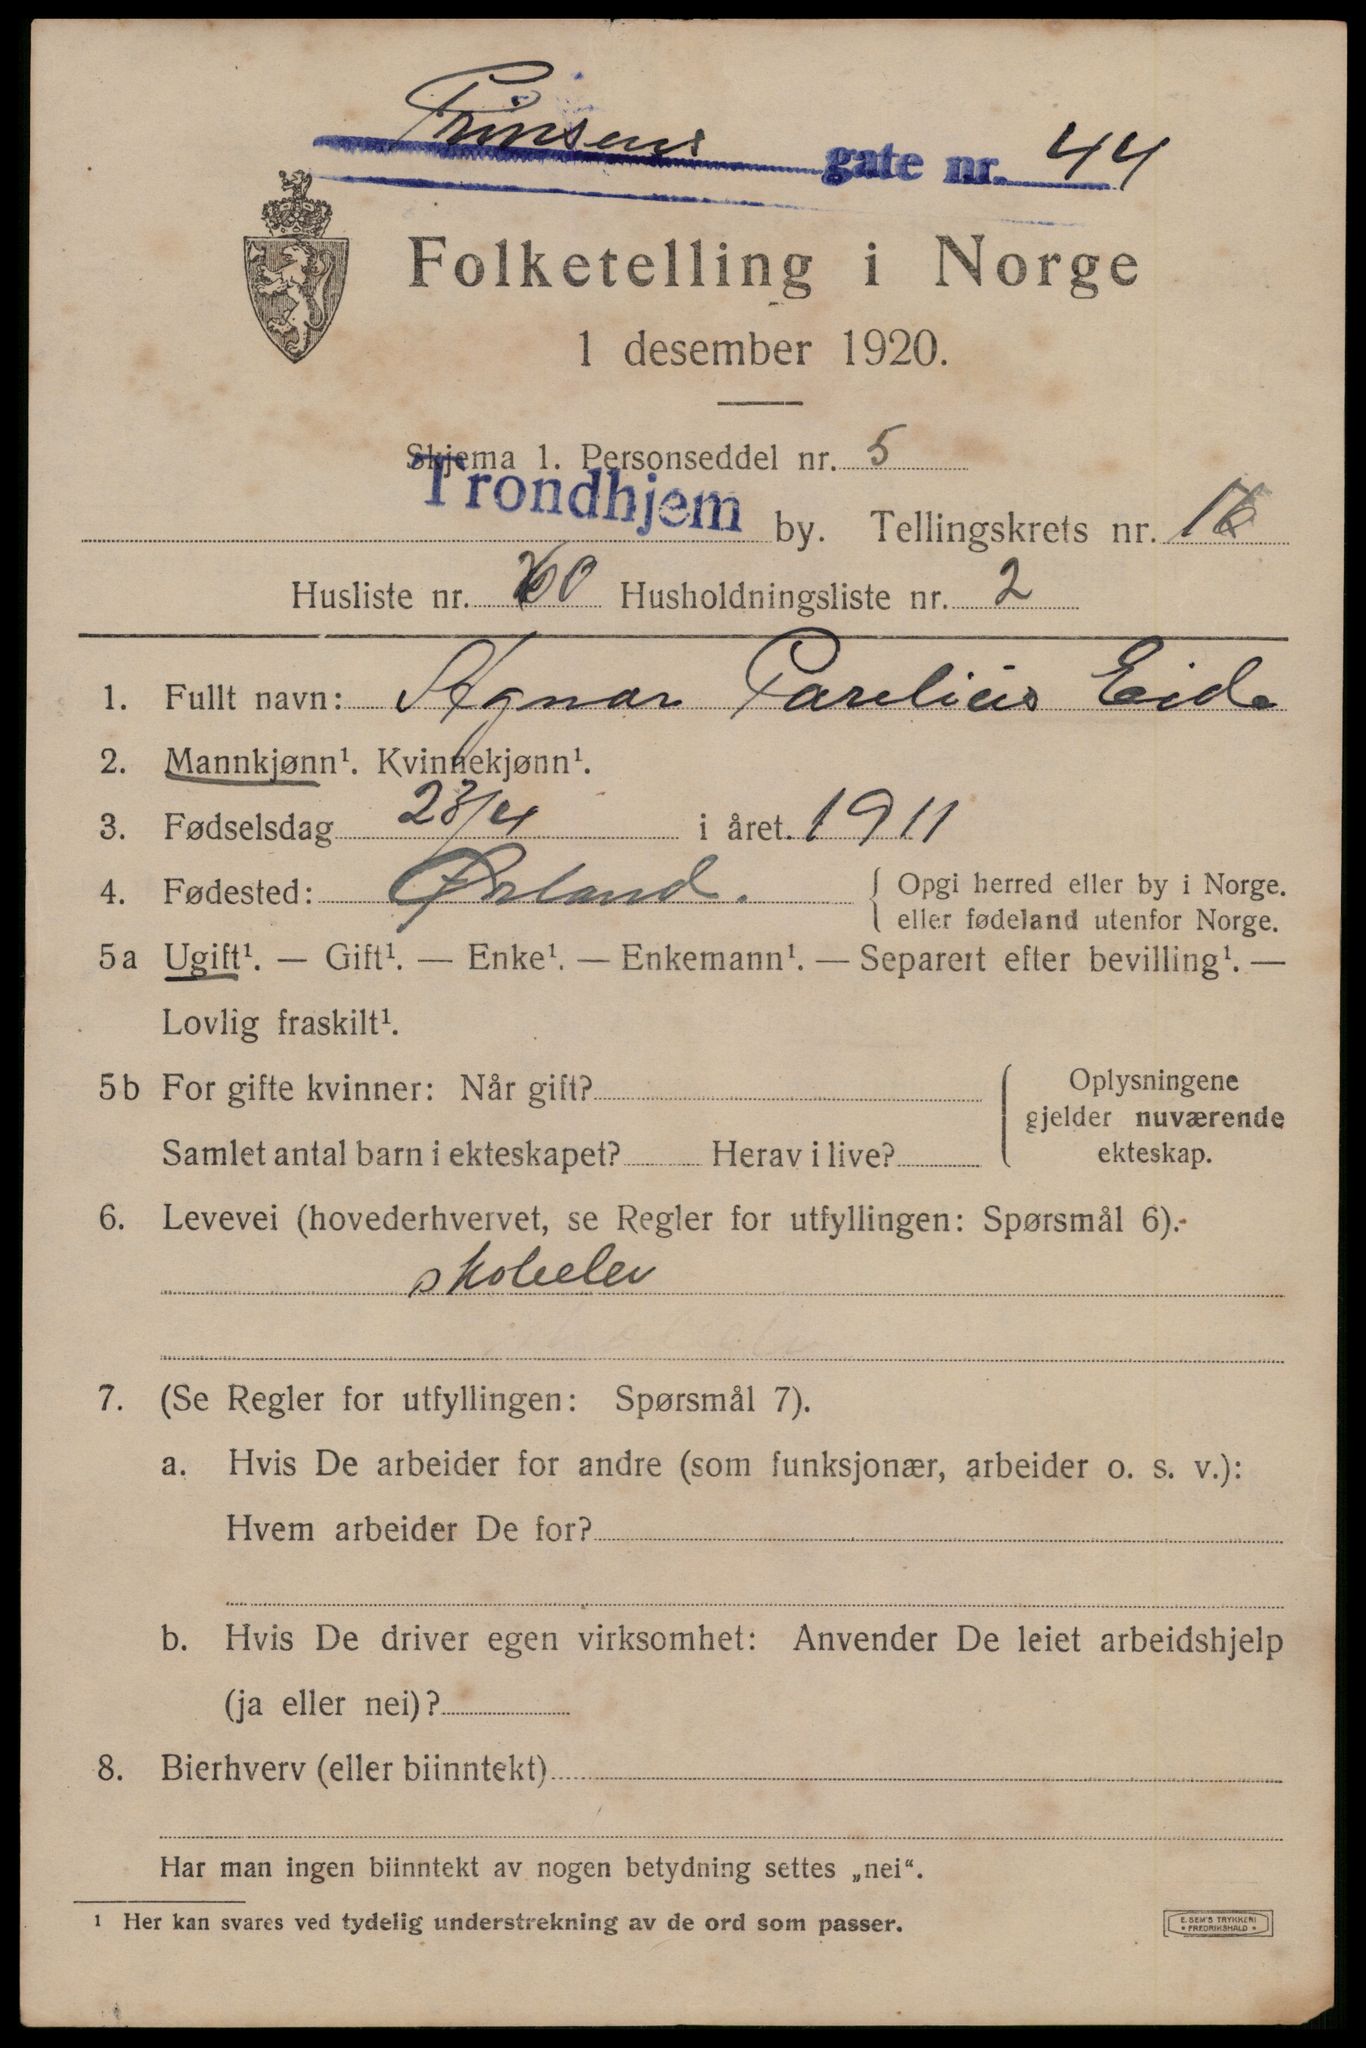 Prinsens gate nr. 44
Folketelling i Norge
1 desember 1920.
Skjema 1. Personseddel nr. 5
Trondhjem by. Tellingskrets nr.
Husliste nr. Husholdningsliste nr. 2
1. Fullt navn: Agnar Parelius Eide
2. Mannkjønn¹. Kvinnekjønn¹.
3. Fødselsdag 23/4 i året 1911
4. Fødested: Ørland. { Opgi herred eller by i Norge.
{ eller fødeland utenfor Norge.
5a Ugift¹. — Gift¹. — Enke¹. — Enkemann¹. — Separert efter bevilling¹. —
Lovlig fraskilt¹.
5b For gifte kvinner: Når gift?
Samlet antal barn i ekteskapet? Herav i live?
Oplysningene
gjelder nuværende
ekteskap.
6. Levevei (hovederhvervet, se Regler for utfyllingen: Spørsmål 6).
skoleelev
7. (Se Regler for utfyllingen: Spørsmål 7).
a. Hvis De arbeider for andre (som funksjonær, arbeider o. s. v.):
Hvem arbeider De for?
b. Hvis De driver egen virksomhet: Anvender De leiet arbeidshjelp
(ja eller nei)?
8. Bierhverv (eller biinntekt)
Har man ingen biinntekt av nogen betydning settes „nei“.
¹ Her kan svares ved tydelig understrekning av de ord som passer.
E. SEM'S TRYKKERI
• FREDRIKSHALD •